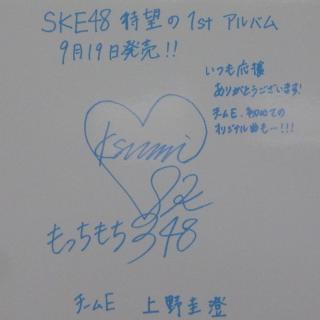 SKE48 待望の1st アルバム
9月19日発売!!
いつも応援
ありがとうございます!
チームE、初めての
オリジナル曲も…!!!
Kasumi
SKE48
もっちもち
チームE 上野圭澄